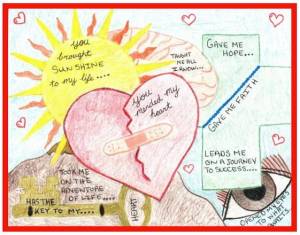 YOU
brought
SUNSHINE
to my life....
TAUGHT
ME ALL
I KNOW...
GAVE ME
HOPE...
YOU
mended my
heart
GAVE ME FAITH
LEADS ME
ON A JOURNEY
TO SUCCESS....
TOOK ME
ON THE
ADVENTURE
OF LIFE....
HAS THE
KEY TO MY....
HEART
OPENED MY EYES
TO WHAT
AWAITS